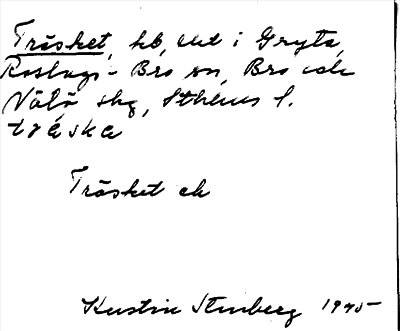 Träsket, hb, del i Gryta,
Roslags-Bro sn, Bro och
Vätö skg, Sthlms l.
träska
Träsket ek
Kerstin Stenberg 1945